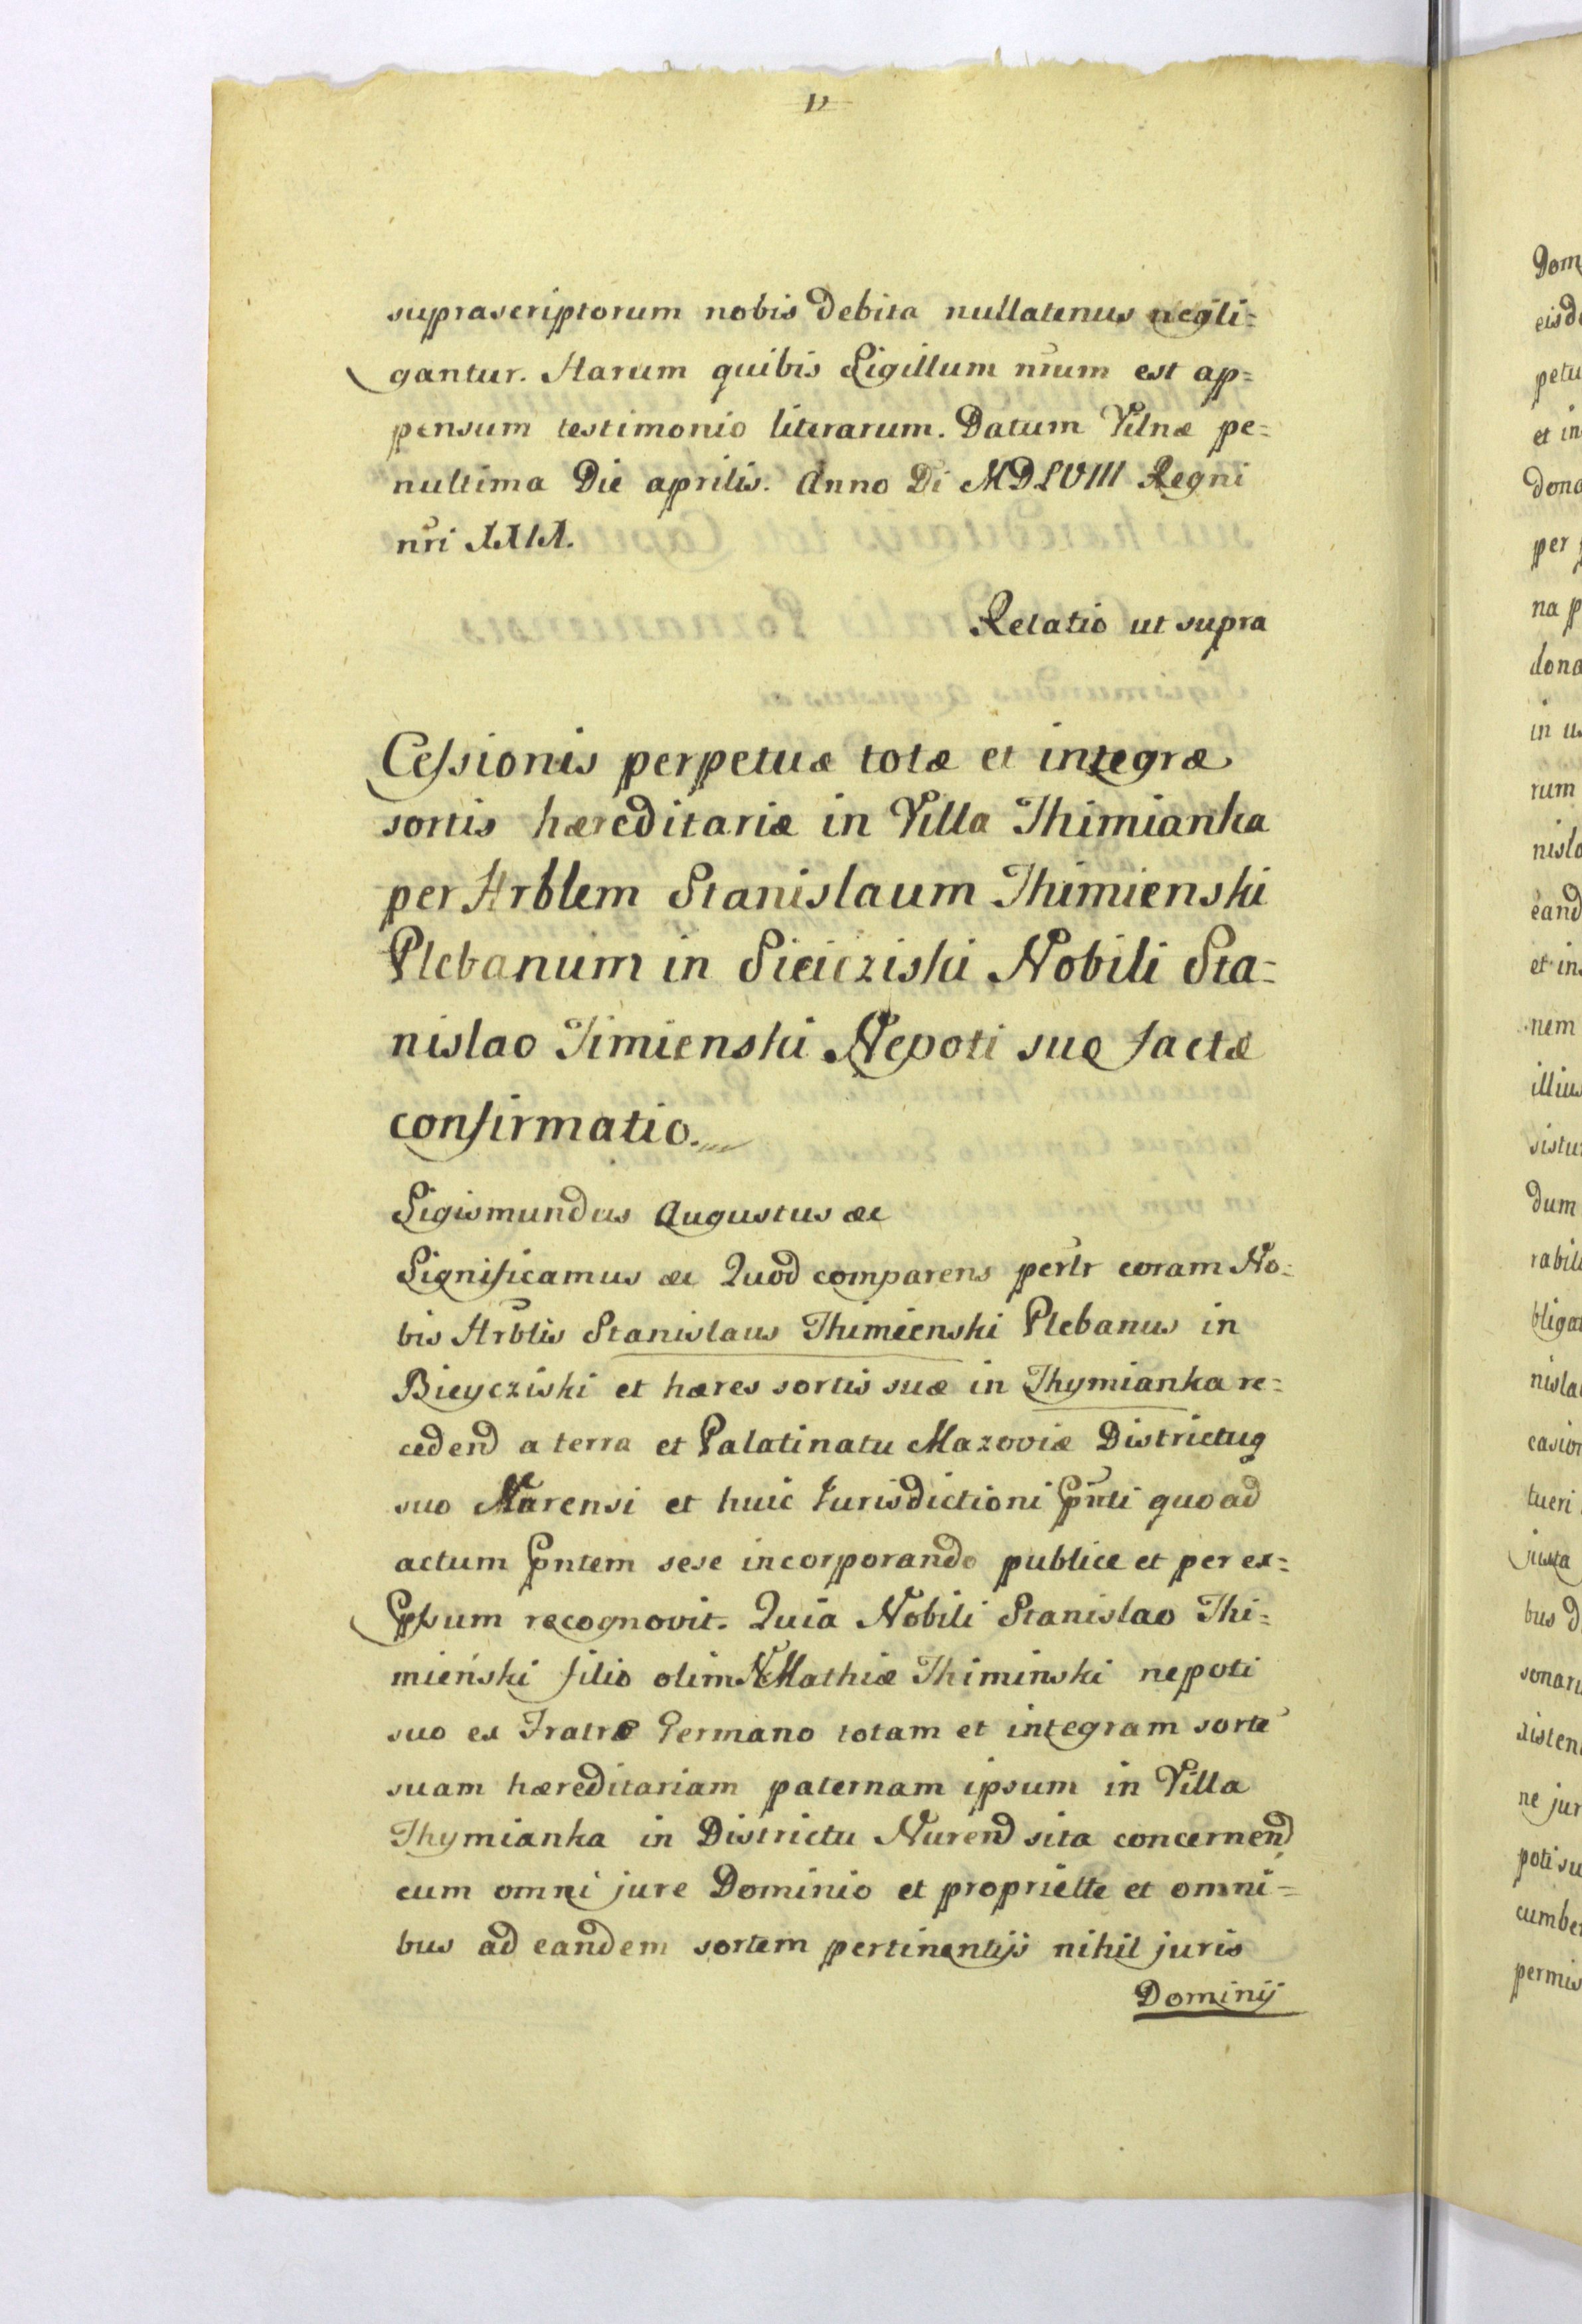 suprascriptorum nobis debita nullatenus negli=
gantur. Harum quibis Sigillum nrum est ap=
pensum testimonio literarum. Datum Vilnæ pe=
nultima Die aprilis. Anno Di MDLVIII Regni
nri XXIX.
Relatio ut supra
Cessionis perpetuæ totæ et integræ
sortis hæreditariæ in Villa Thimianka
per Hrblem Stanislaum Thimienski
Plebanum in Sieicziski Nobili Sta=
nislao Timienski Nepoti suo factæ
confirmatio.
Sigismundus Augustus &c
Significamus &c Quod comparens perlr coram No=
bis Hrblis Stanislaus Thimienski Plebanus in
Bieycziski et hæres sortis suæ in Thymianka re=
cedend a terra et Palatinatu Mazoviæ Districtuq
suo Narensi et huic Jurisdictioni pnti quoad
actum pntem sese incorporando publice et per ex=
pssum recognovit. Quia Nobili Stanislao Thi=
mieński filio olim N Mathiæ Thiminski nepoti
suo ex Fratre Germano totam et integram sorte
suam hæreditariam paternam ipsum in Villa
Thymianka in Districtu Nurend sita concernend
cum omni jure Dominio et propriette et omni=
bus ad eandem sortem pertinentijs nihil juris
Dominij
Dom
eisd
petu
et in
dona
per
na p
dona
in u
rum
nisla
eand
et in
nem
illius
sistu
dum
rabili
bliga
nisla
casion
tueri
juxta
bus d
sonar
xisten
ne jur
poti su
cumbe
permis